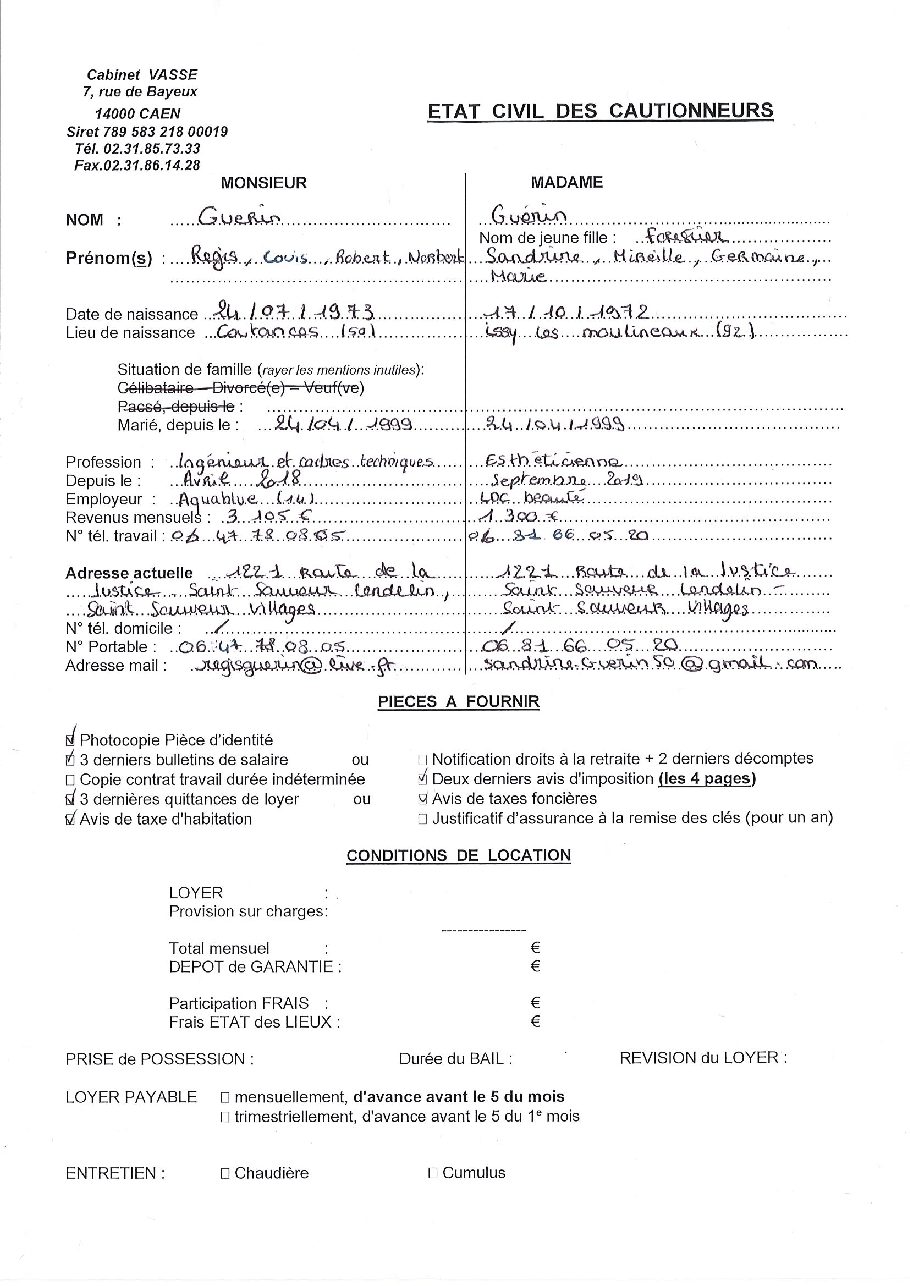 Cabinet VASSE
7, rue de Bayeux
14000 CAEN
Siret 789 583 218 00019
Tél. 02.31.85.73.33
Fax.02.31.86.14.28
ETAT CIVIL DES CAUTIONNEURS
MONSIEUR MADAME
NOM : Guerin Guérin
Nom de jeune fille : Forestier
Prénom(s) : Regis, Louis, Robert, Norbert Sandrine, Mireille, Germaine,
Marie
Date de naissance 24/07/1973 17/10/1972
Lieu de naissance Coutances (50) issy les moulineaux (92)
Situation de famille (rayer les mentions inutiles):
Célibataire – Divorcé(e) – Veuf(ve)
Pacsé, depuis le :
Marié, depuis le : 24/04/1999 24/04/1999
Profession : Ingénieur et cadres techniques Esthéticienne
Depuis le : Avril 2018 Septembre 2019
Employeur : Aquablue LDC beauté
Revenus mensuels : 3 105 € 1 300 €
N° tél. travail : 06 47 78 08 05 06 81 66 05 20
Adresse actuelle 1221 Route de la 1221 Route de la Justice
Justice Saint Sauveur Lendelin, Saint Sauveur Lendelin -
Saint Sauveur Villages Saint Sauveur Villages
N° tél. domicile : / /
N° Portable : 06.47.78.08.05 06 81 66 05 20
Adresse mail : regisguerin@live.fr sandrine.guerin50@gmail.com
PIECES A FOURNIR
☑ Photocopie Pièce d'identité
☑ 3 derniers bulletins de salaire ou ☐ Notification droits à la retraite + 2 derniers décomptes
☐ Copie contrat travail durée indéterminée ☑ Deux derniers avis d'imposition (les 4 pages)
☑ 3 dernières quittances de loyer ou ☑ Avis de taxes foncières
☑ Avis de taxe d'habitation ☐ Justificatif d'assurance à la remise des clés (pour un an)
CONDITIONS DE LOCATION
LOYER :
Provision sur charges:
----------------
Total mensuel : €
DEPOT de GARANTIE : €
Participation FRAIS : €
Frais ETAT des LIEUX : €
PRISE de POSSESSION : Durée du BAIL : REVISION du LOYER :
LOYER PAYABLE ☐ mensuellement, d'avance avant le 5 du mois
☐ trimestriellement, d'avance avant le 5 du 1e mois
ENTRETIEN : ☐ Chaudière ☐ Cumulus